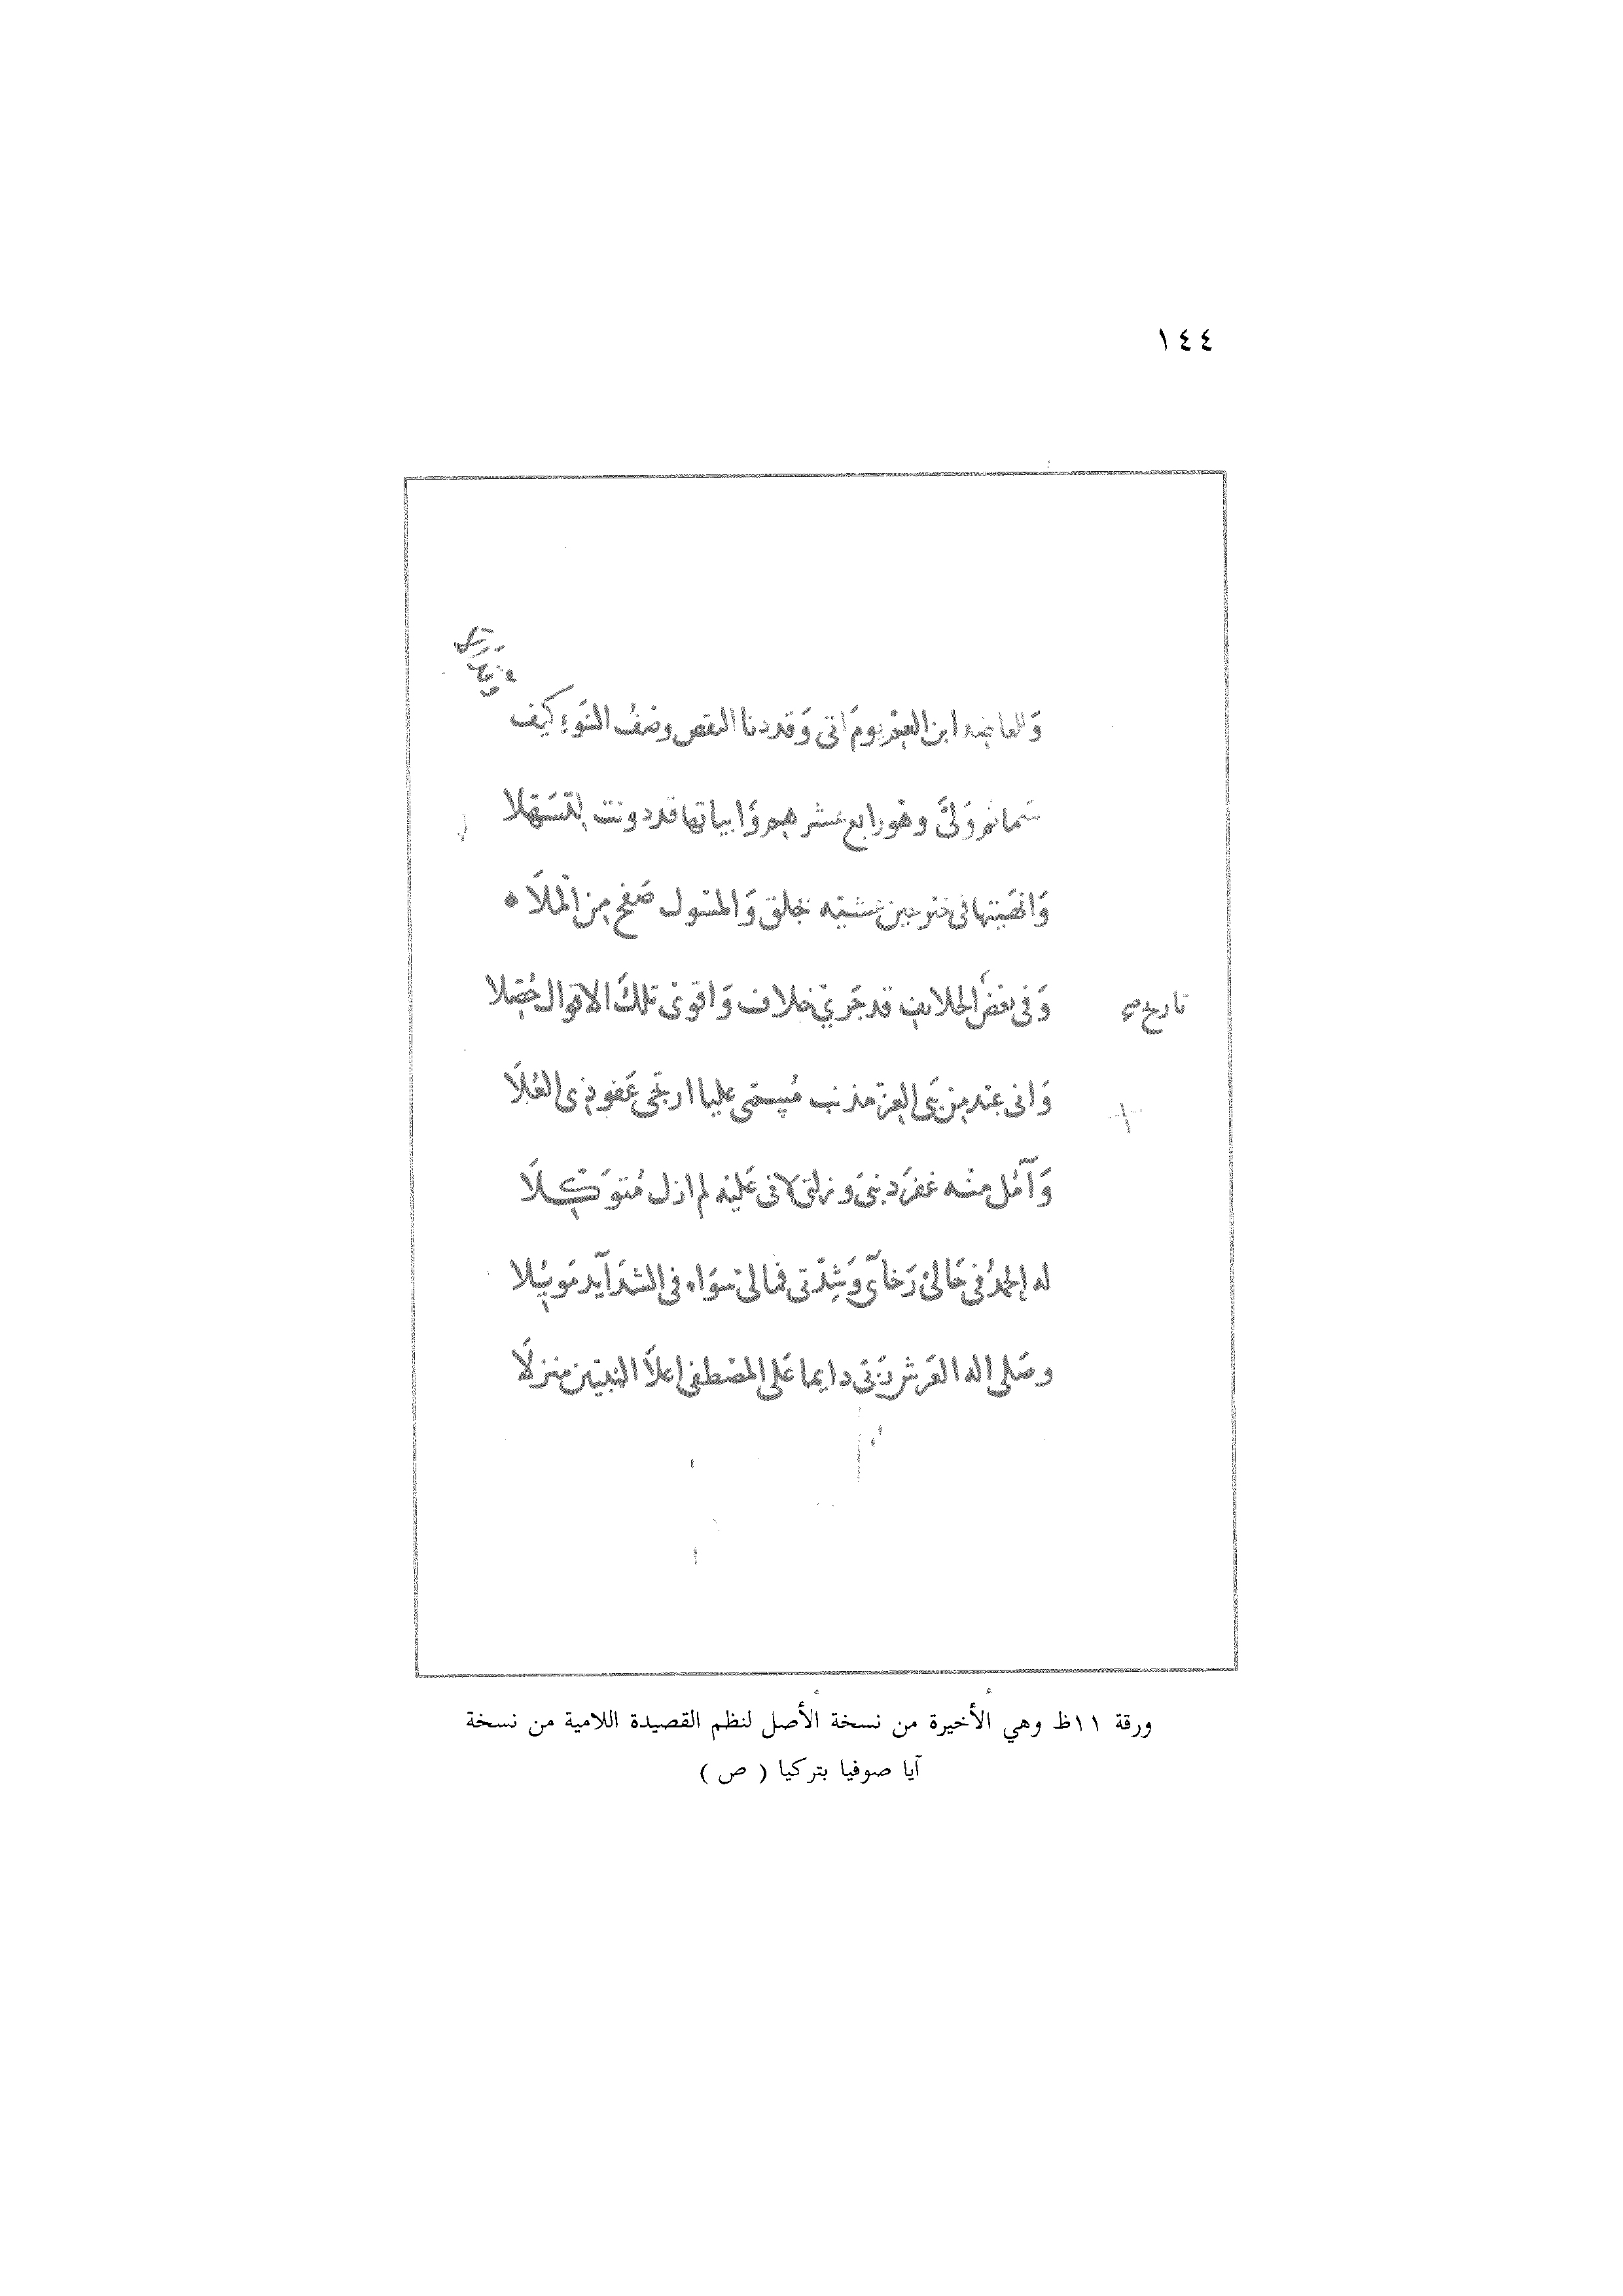 ١٤٤
وَللعاضد ابن العم يومَ اتى وَقد دنا النقص وصْفُ النوَء كيف
سَما ثم وَلىَّ وهْو رابع عشر هم وَابياتها قد دونت لتسَهْلا
وَانهَيتها فى حين عشيّه بجلق وَالمسْول صَفح مِن الملَا
وَفى بعْض الخلايف قد جَرىْ خلاف وَاقوىْ تلكَ الاقوال حُصّلا
تاريخ
وَانى عبْد مِن بَنى العز مذنب مُسمّى عليا ارتجَى عَفو ذى العُلَا
وَآمُل منْه غفرَ ذنبىَ وزلتى لانى عَليْه لم ازل مُتوَكِّلَا
له الحمدُ فى حَالىْ رَخآى وَشِدْتى فمالىْ سوَاه فى الشدَآيد مَوئِلا
وصَلى اله العَرش رَبّى دايما عَلى المصْطفى اعلَا النبيّين منزلَا
ورقة ١١ظ وهي الأخيرة من نسخة الأصل لنظم القصيدة اللامية من نسخة
آيا صوفيا بتركيا ( ص )